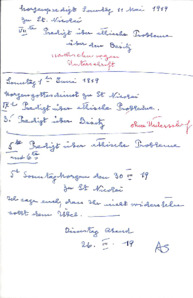 Morgenpredigt Sonntag 11 Mai 1919
zu St Nicolai
Predigt über ethische Probleme
über den Besitz
Unterschrift
Sonntag 1ten Juni 1919
Morgengottesdienst zu St Nicolai
Predigt über ethische Probleme.
3. Predigt über Besitz
ohne Unterschrift
5te Predigt über ethische Probleme
und 6te
5t Sonntagmorgen den 30 19
zu St Nicolai
Ich sage euch, dass Ihr nicht widerstehen
sollt dem Übel.
Dienstag Abend
26. 19
AS